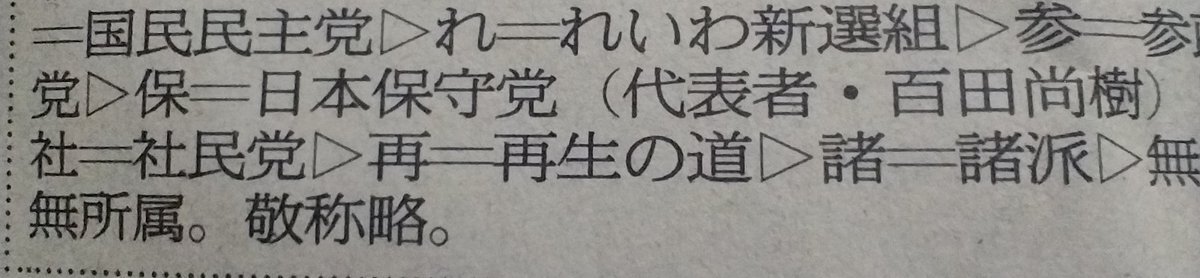 ＝国民民主党▷れ＝れいわ新選組▷参＝参
党▷保＝日本保守党（代表者・百田尚樹）
社＝社民党▷再＝再生の道▷諸＝諸派▷無
無所属。敬称略。